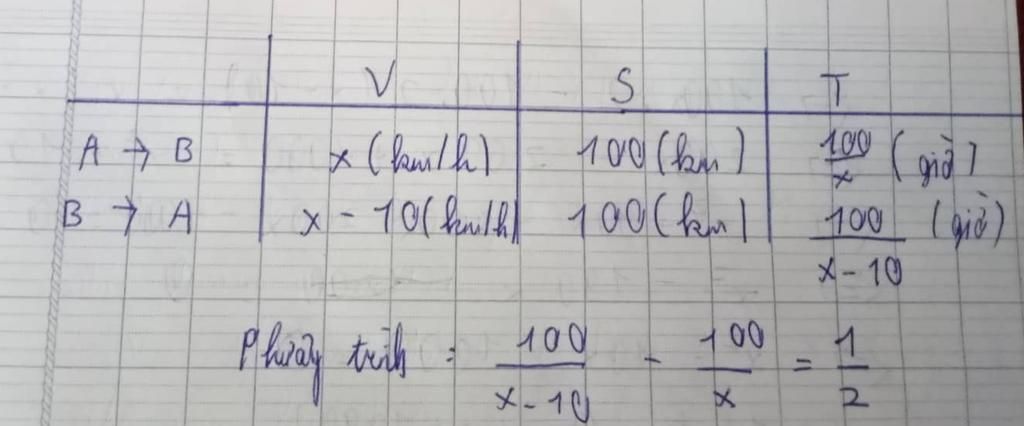 V S T
A → B x (km/h) 100 (km) 100/x (giờ)
B → A x - 10 (km/h) 100 (km) 100/(x - 10) (giờ)
Phương trình : 100/(x - 10) - 100/x = 1/2